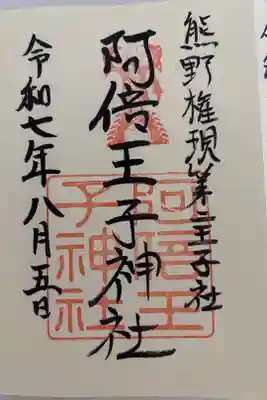 熊野権現第二王子社
阿倍王子神社
令和七年八月五日
阿倍王
子神社